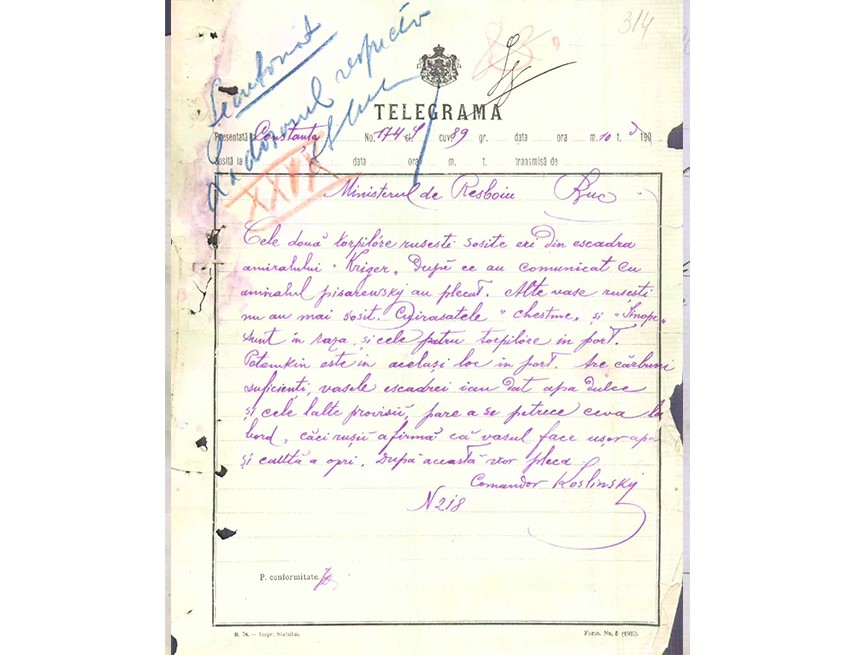 314
Secretariat
La dosarul respectiv
XXVII
TELEGRAMA
Presentată la Constanța No. 1744 cuv 89 gr. data ora m. 10 t. 190
Sosită la data ora m. t. transmisă de
Ministerul de Resboiu Buc
Cele două torpilóre rusesti sosite eri din escadra
amiralului Kriger. După ce au comunicat cu
amiralul pisarewskj au plecat. Alte vase rusești
nu au mai sosit. Cuirasatele "chestme" și "Sinope"
sunt in rada și cele patru torpilóre in port.
Potemkin este in acelasi loc in port. Are cărbuni
suficienți, vasele escadrei iau dat apa dulce
și cele lalte provisii, pare a se petrece ceva la
bord, căci rușii afirmă că vasul face ușor apa
și caută a opri. După aceastá vor pleca.
Comandor Koslinskj
N 218
P. conformitate.
M. 76. — Impr. Statului.
Form. No. 5 (1905)